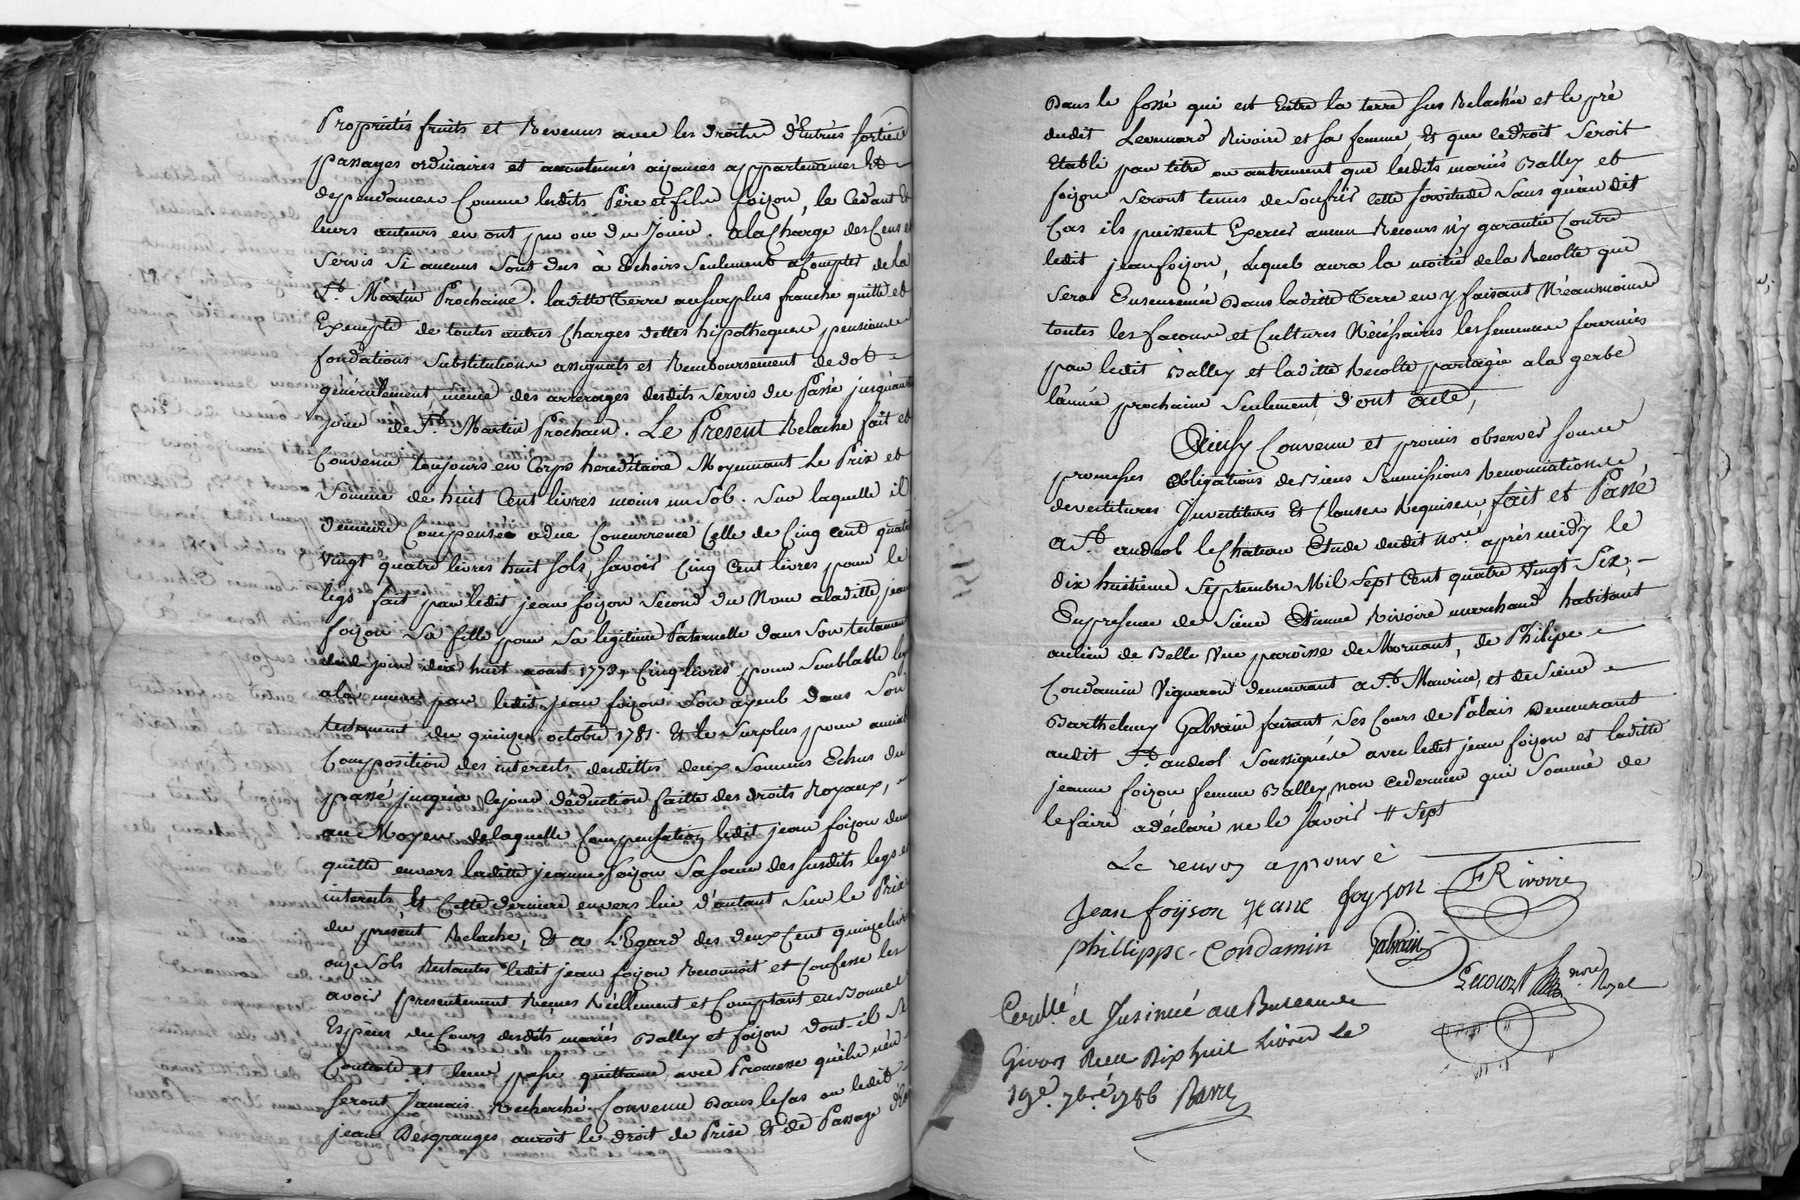 Proprietés fruits et Revenus avec les droits d'Entrées sorties
passages ordinaires et accoutumés aizances appartenances Et
dependances Comme lesdits Pere et fils foizon, le Cedant Et
leurs auteurs en ont pu ou du Jouir. ala Charge des Cens et
servis Si aucuns Sont dus à Echoirs Seulement a Compter de la
St. Martin Prochaine. laditte Terre au surplus franche quitte et
Exempte de toutes autres Charges dettes hipotheques pensions
fondations Substitutions assignats et Remboursement de dot
généralement même des arrerages desdits Servis du Passé jusqu'au
jour de St. Martin Prochain. Le Present Relache fait et
Convenu toujours en Corps hereditaire Moyennant Le Prix et
Somme de huit Cent livres moins un Sol. Sur laquelle il
demeure Compensée a due Concurrence Celle de Cinq Cent quatre
vingt quatre livres huit sols, savoir Cinq Cent livres pour le
legs fait par ledit jean foizon Second du Nom a laditte jeanne
foizon Sa fille pour Sa legitime Paternelle dans Son testament
du dix huit aout 1778, Cinq livres pour Semblable legs
a la meme par ledit jean foizon Son ayeul dans Son
testament du quinze octobre 1781. Et le Surplus pour amiable
Composition des interets desdittes deux Sommes Echus du
passé jusqu'a Cejour déduction faitte des droits Royaux,
au Moyen de laquelle Compensation ledit jean foizon demeure
quitte envers laditte jeanne foizon Sa soeur des susdits legs et
interets, Et Cette derniere envers lui d'autant Sur le Prix
du présent Relache, Et a L'Egard des deux Cent quinze livres
onze Sols Restantes ledit jean foizon Reconnoit et Confesse les
avoir présentement Reçues Réellement et Comptant en Bonnes
Especes du Cours desdits mariés Balley et foizon dont-il Se
Contente et leur passe quittance, avec Promesse qu'ils n'en
seront Jamais Recherché. Convenu Dans le Cas ou ledit
jean Desgranges auroit le droit de Prise Et de Passage
Dans le fossé qui est Entre la terre sus Relachée et le pré
dudit Leonnard Rivoire et sa femme, Et que ce droit Seroit
Etabli par titre ou autrement que lesdits mariés Balley et
foizon Seront tenus de Soufrir Cette servitude Sans qu'au dit
Cas ils puissent Exercer aucun Recours ny garantie Contre
ledit jean foizon, Lequel aura la moitié de la Recolte qui
sera Ensemencée Dans laditte Terre en y faisant Néanmoins
toutes les facons et Cultures Nécéssaires les semences fournies
par ledit Balley et laditte Recolte partagée a la gerbe
l'année prochaine Seulement d'ont acte,
Ainsy Convenu et promis observer sous
promesses obligations de Biens Soumissions Renonciations
devestitures Investitures Et Clauses Requises fait et Passé
a St. andeol le Chateau Etude dudit nore. après midy le
dix huitieme Septembre Mil Sept Cent quatre Vingt Six,
En presence de Sieur Etienne Rivoire marchand habitant
au lieu de Belle Vue paroisse de Mornant, de Philipe
Condamin Vigneron demeurant a St. Maurice, et de Sieur
Barthelemy Galvain faisant Ses Cours de Palais Demeurant
audit St. andeol Soussignés avec ledit jean foizon et laditte
jeanne foizon femme Balley, non ce dernier qui Sommé de
le faire a déclaré ne le savoir # sept
Le renvoy aprouvé
Jean foyson Jeane foyzon ERivoire
phillippe Condamin Galvain
nore. Royal
Conllé et Insinué au Bureau de
Givors Recu Dix huit Livres Le
19e. 7bre 1786